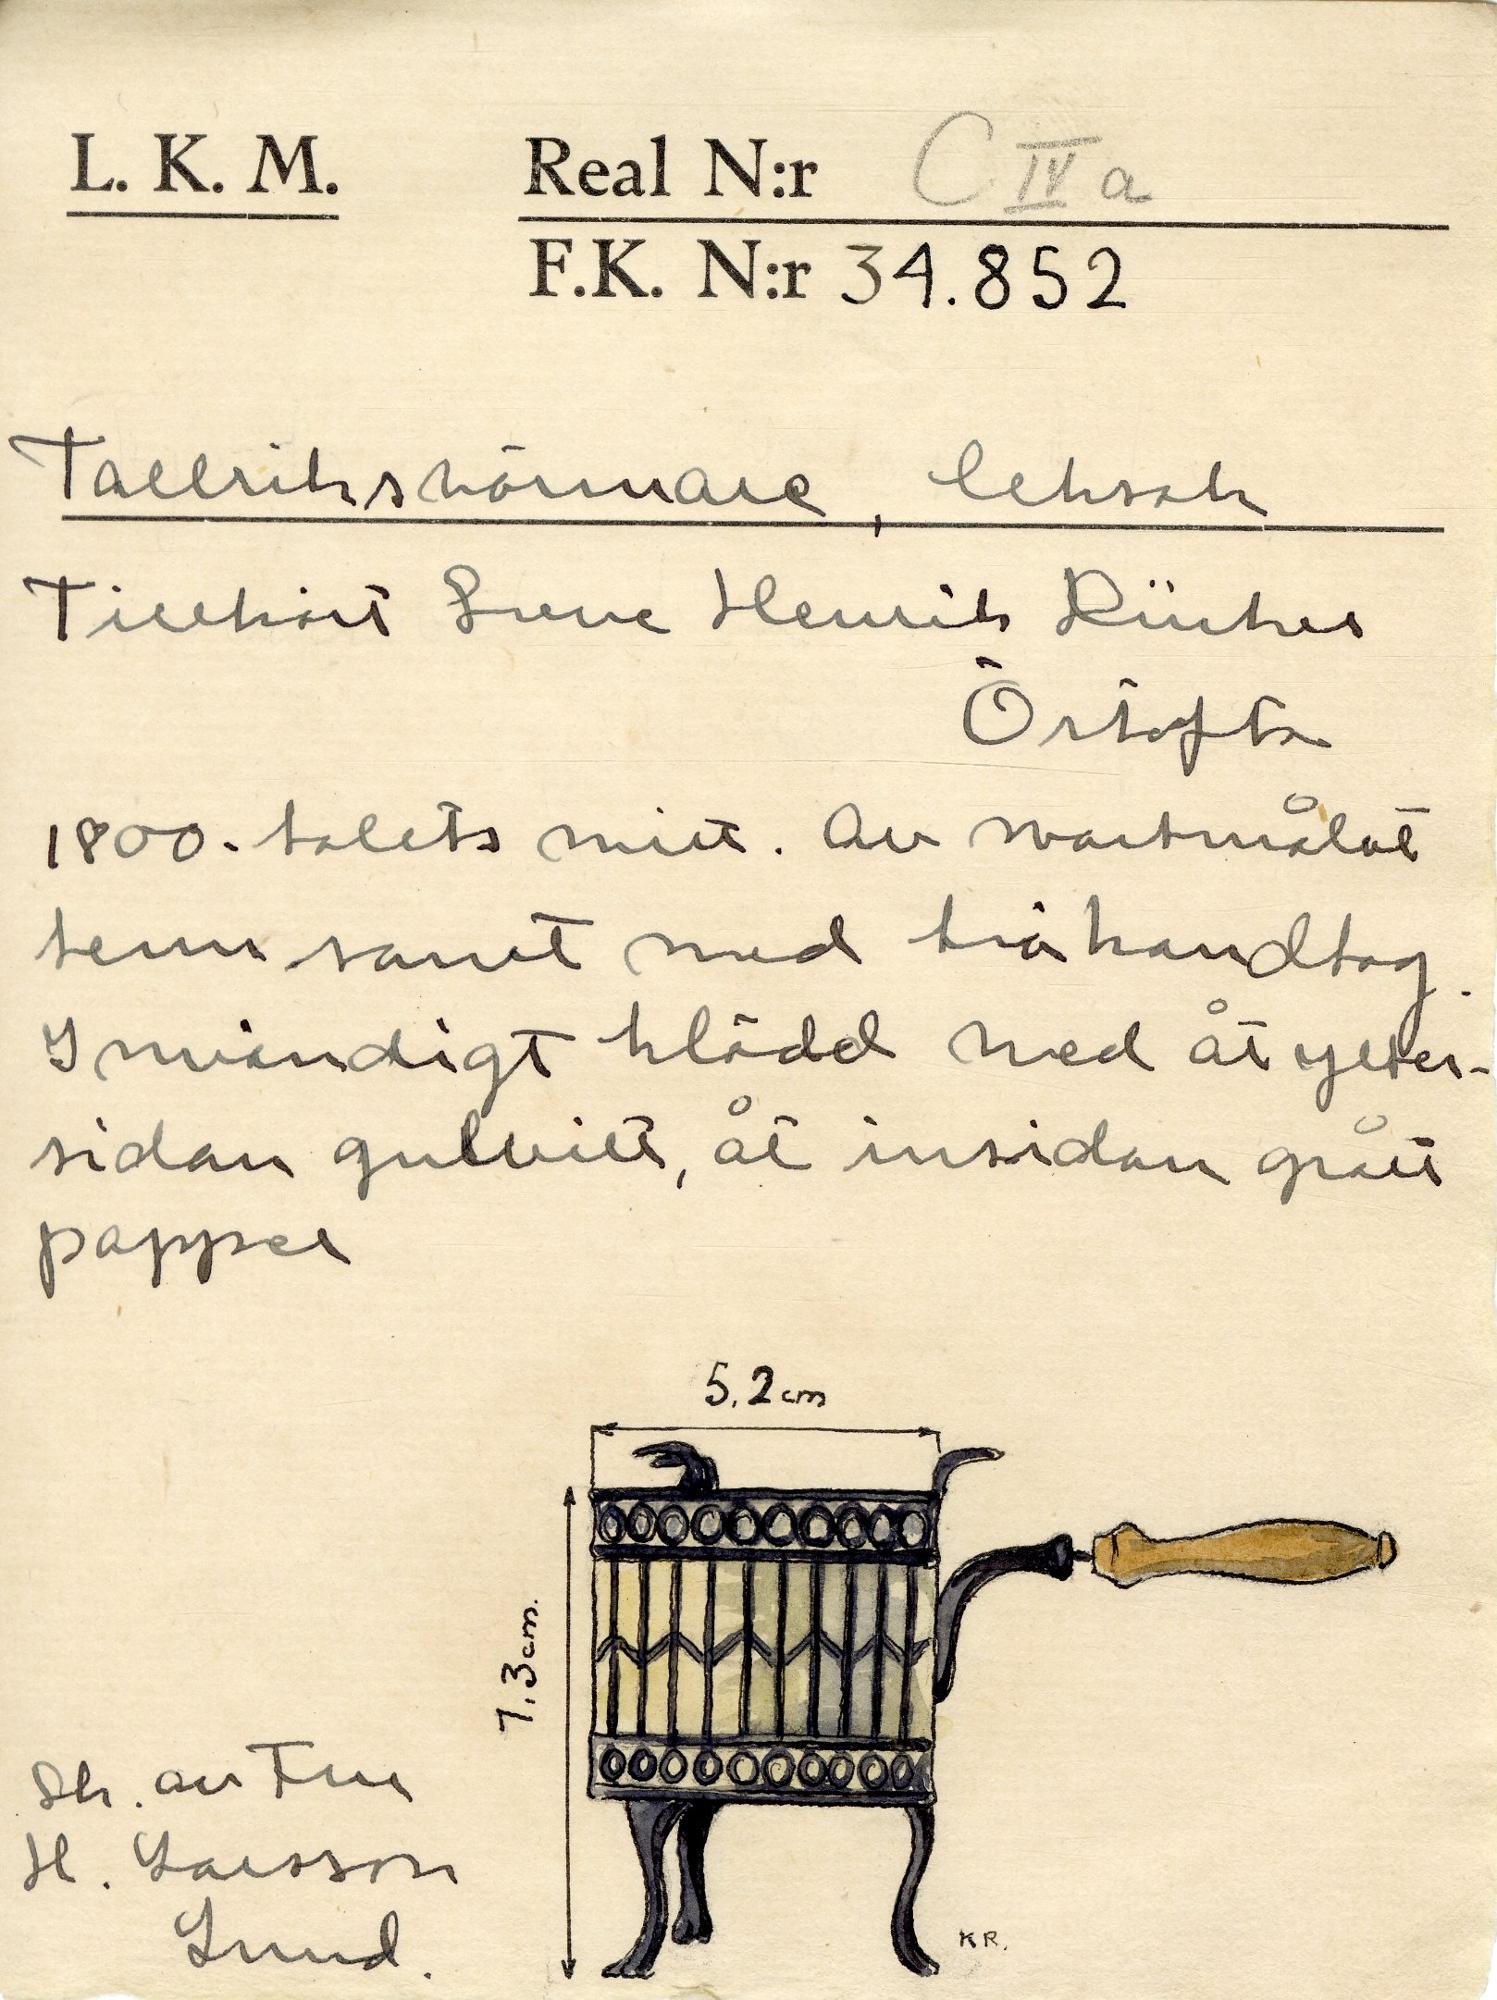 L. K. M. Real N:r C IV a
F.K. N:r 34.852
Tallriksvärmare, leksak
Tillhört Greve Henrik Dücker
Örtofta
1800-talets mitt. Av svartmålat
tenn samt med trähandtag.
Invändigt klädd med åt ytter-
sidan gulvitt, åt insidan grått
papper
5,2 cm
7,3 cm.
Sk. av Fru
H. Larsson
Lund.
KR.